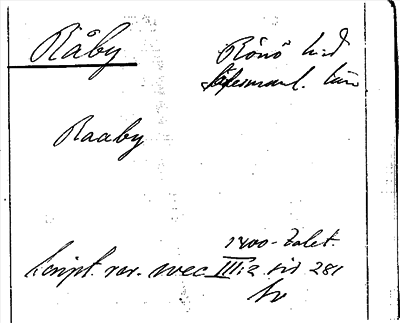 Råby
Rönö hd
Södermanl. län
Raaby
1400-talet
Script. rer. svec III:2 sid 281